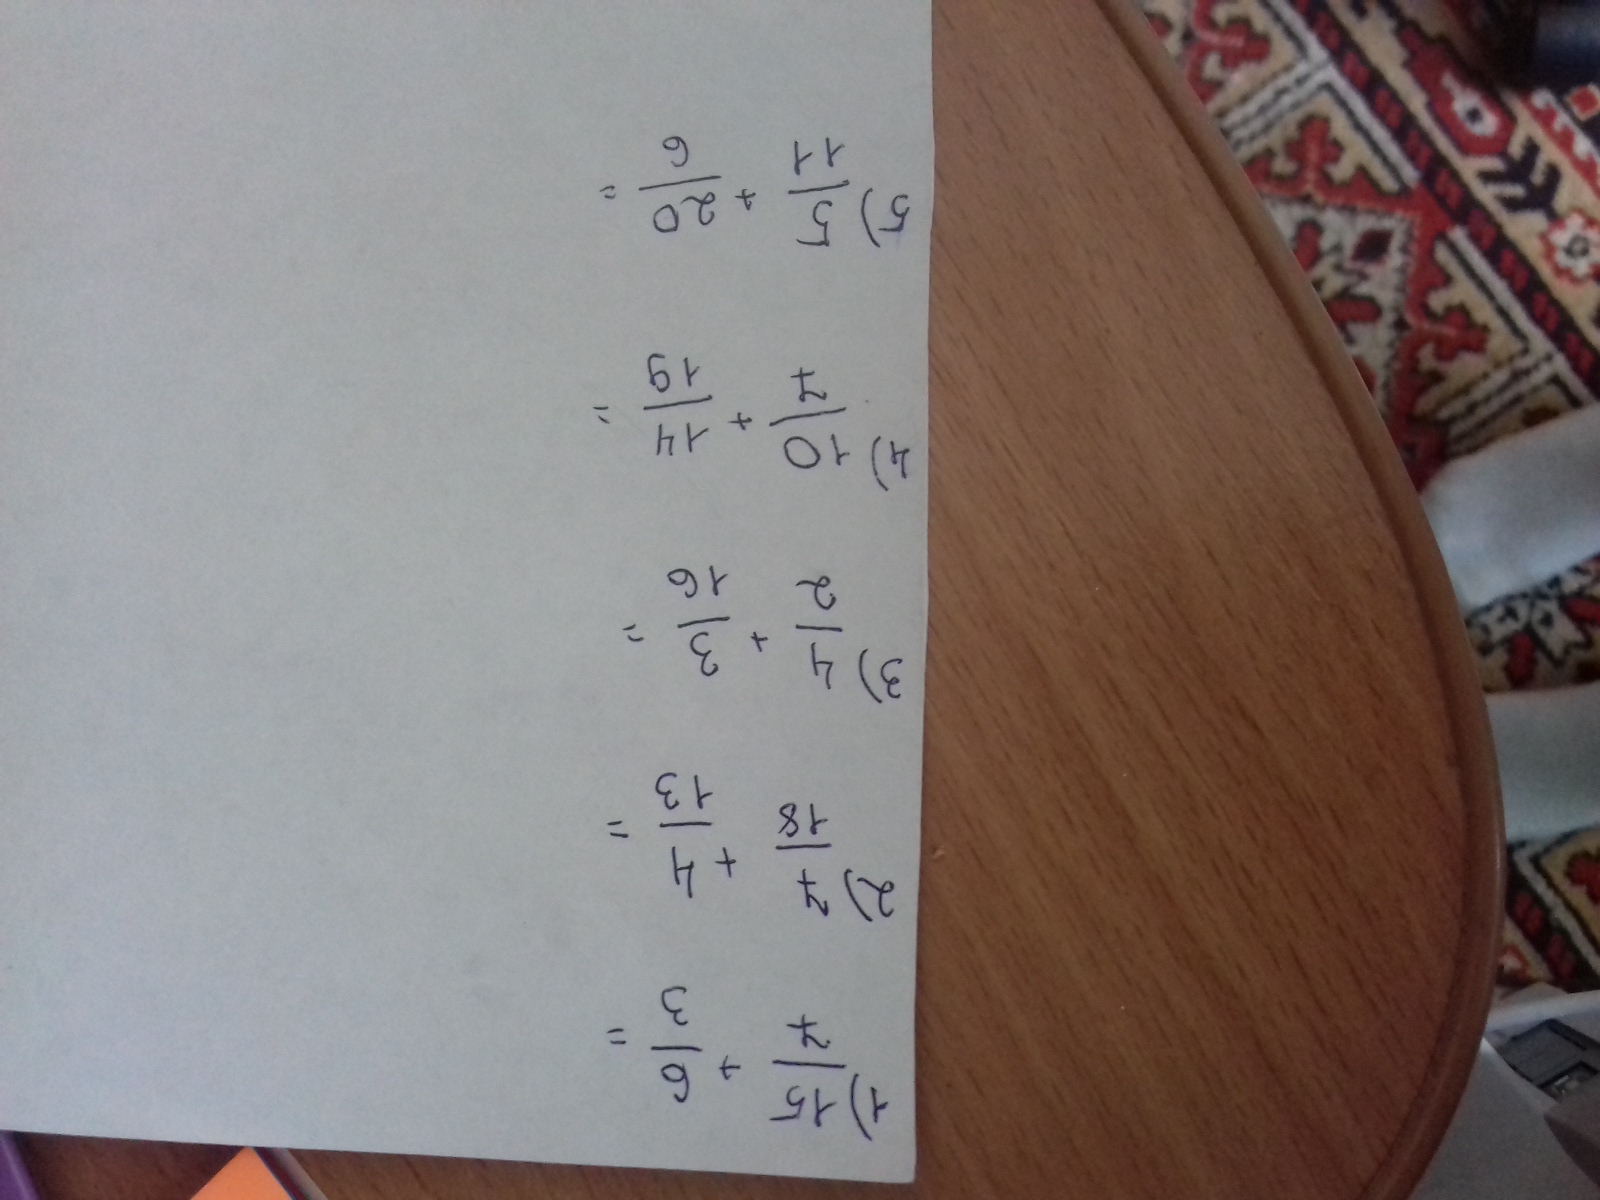 1) 15/7 + 6/3 =
2) 7/18 + 4/13 =
3) 4/2 + 3/16 =
4) 10/7 + 14/19 =
5) 5/11 + 20/6 =